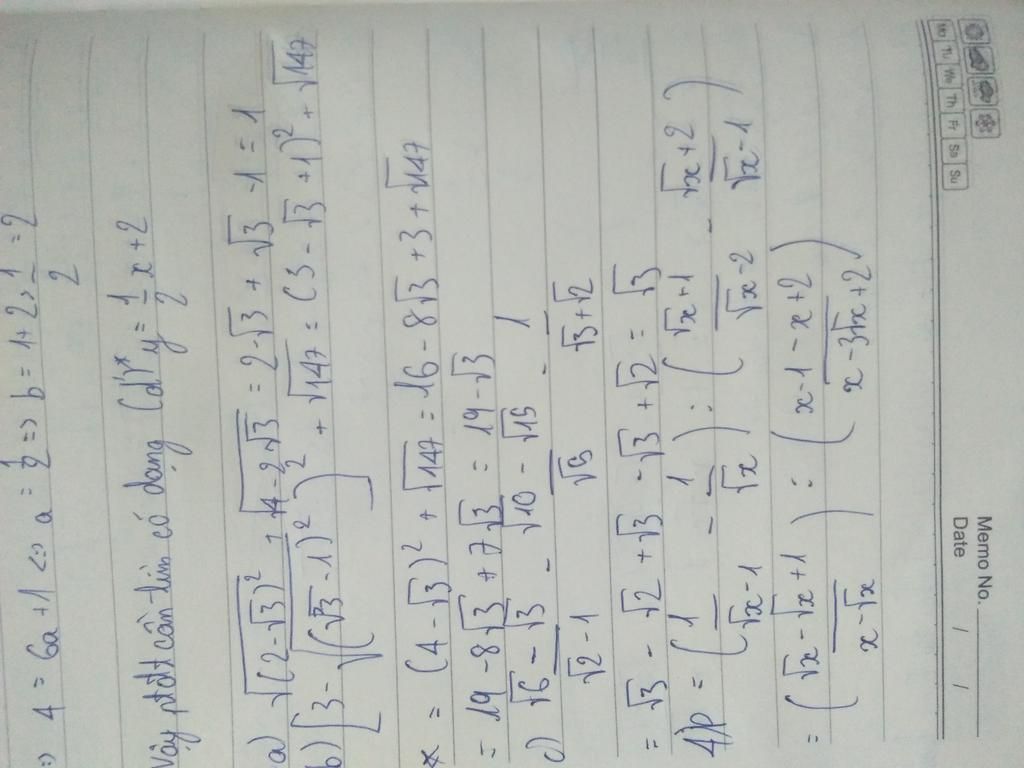 => 4 = 6a + 1 <=> a = 1/2 => b = 1 + 2 . 1/2 = 2
Vậy ptđt cần tìm có dạng (d')* y = 1/2 x + 2
a) √(2-√3)² + √4-2√3 = 2-√3 + √3 - 1 = 1
b) [3 - √(√3-1)²]² + √147 = (3 - √3 + 1)² + √147
* = (4-√3)² + √147 = 16 - 8√3 + 3 + √147
= 19 - 8√3 + 7√3 = 19 - √3
c) √6 - √3 / √2 - 1 - √10 - √15 / √5 - 1 / √3 + √2
= √3 - √2 + √3 - √3 + √2 = √3
4) P = (1/√x-1 - 1/√x) : (√x+1/√x-2 - √x+2/√x-1)
= (√x - √x + 1 / x - √x) : (x - 1 - x + 2 / x - 3√x + 2)
Memo No.
Date / /
Mo Tu We Th Fr Sa Su